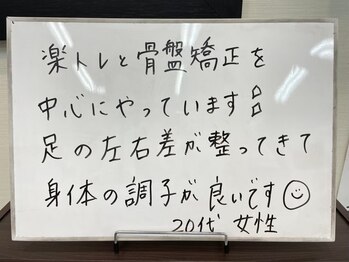 楽トレと骨盤矯正を
中心にやっています!!
足の左右差が整ってきて
身体の調子が良いです☺
20代 女性